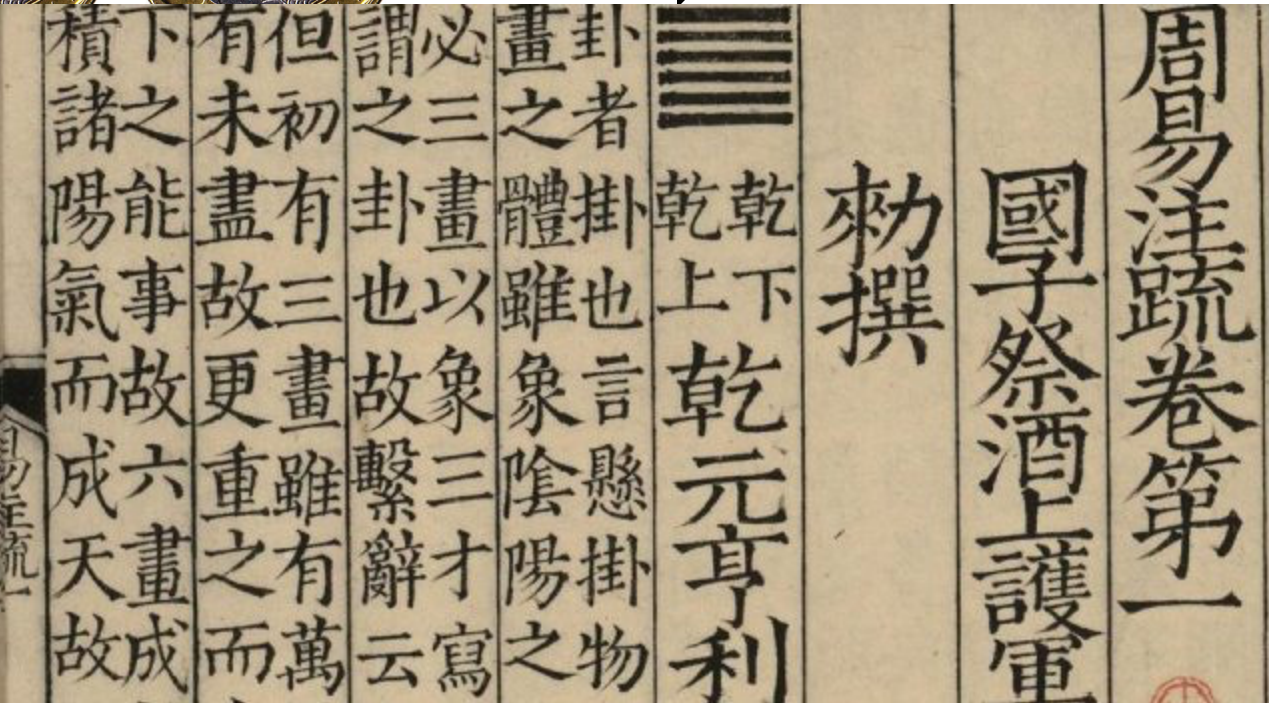 周易注䟽卷第一
國子祭酒上護軍
勑撰
乾下
乾上
乾元亨利
卦者掛也言懸掛物
畫之體雖象陰陽之
必三畫以象三才寫
謂之卦也故繫辭云
但初有三畫雖有萬
有未盡故更重之而
下之能事故六畫成
積諸陽氣而成天故
易注䟽一